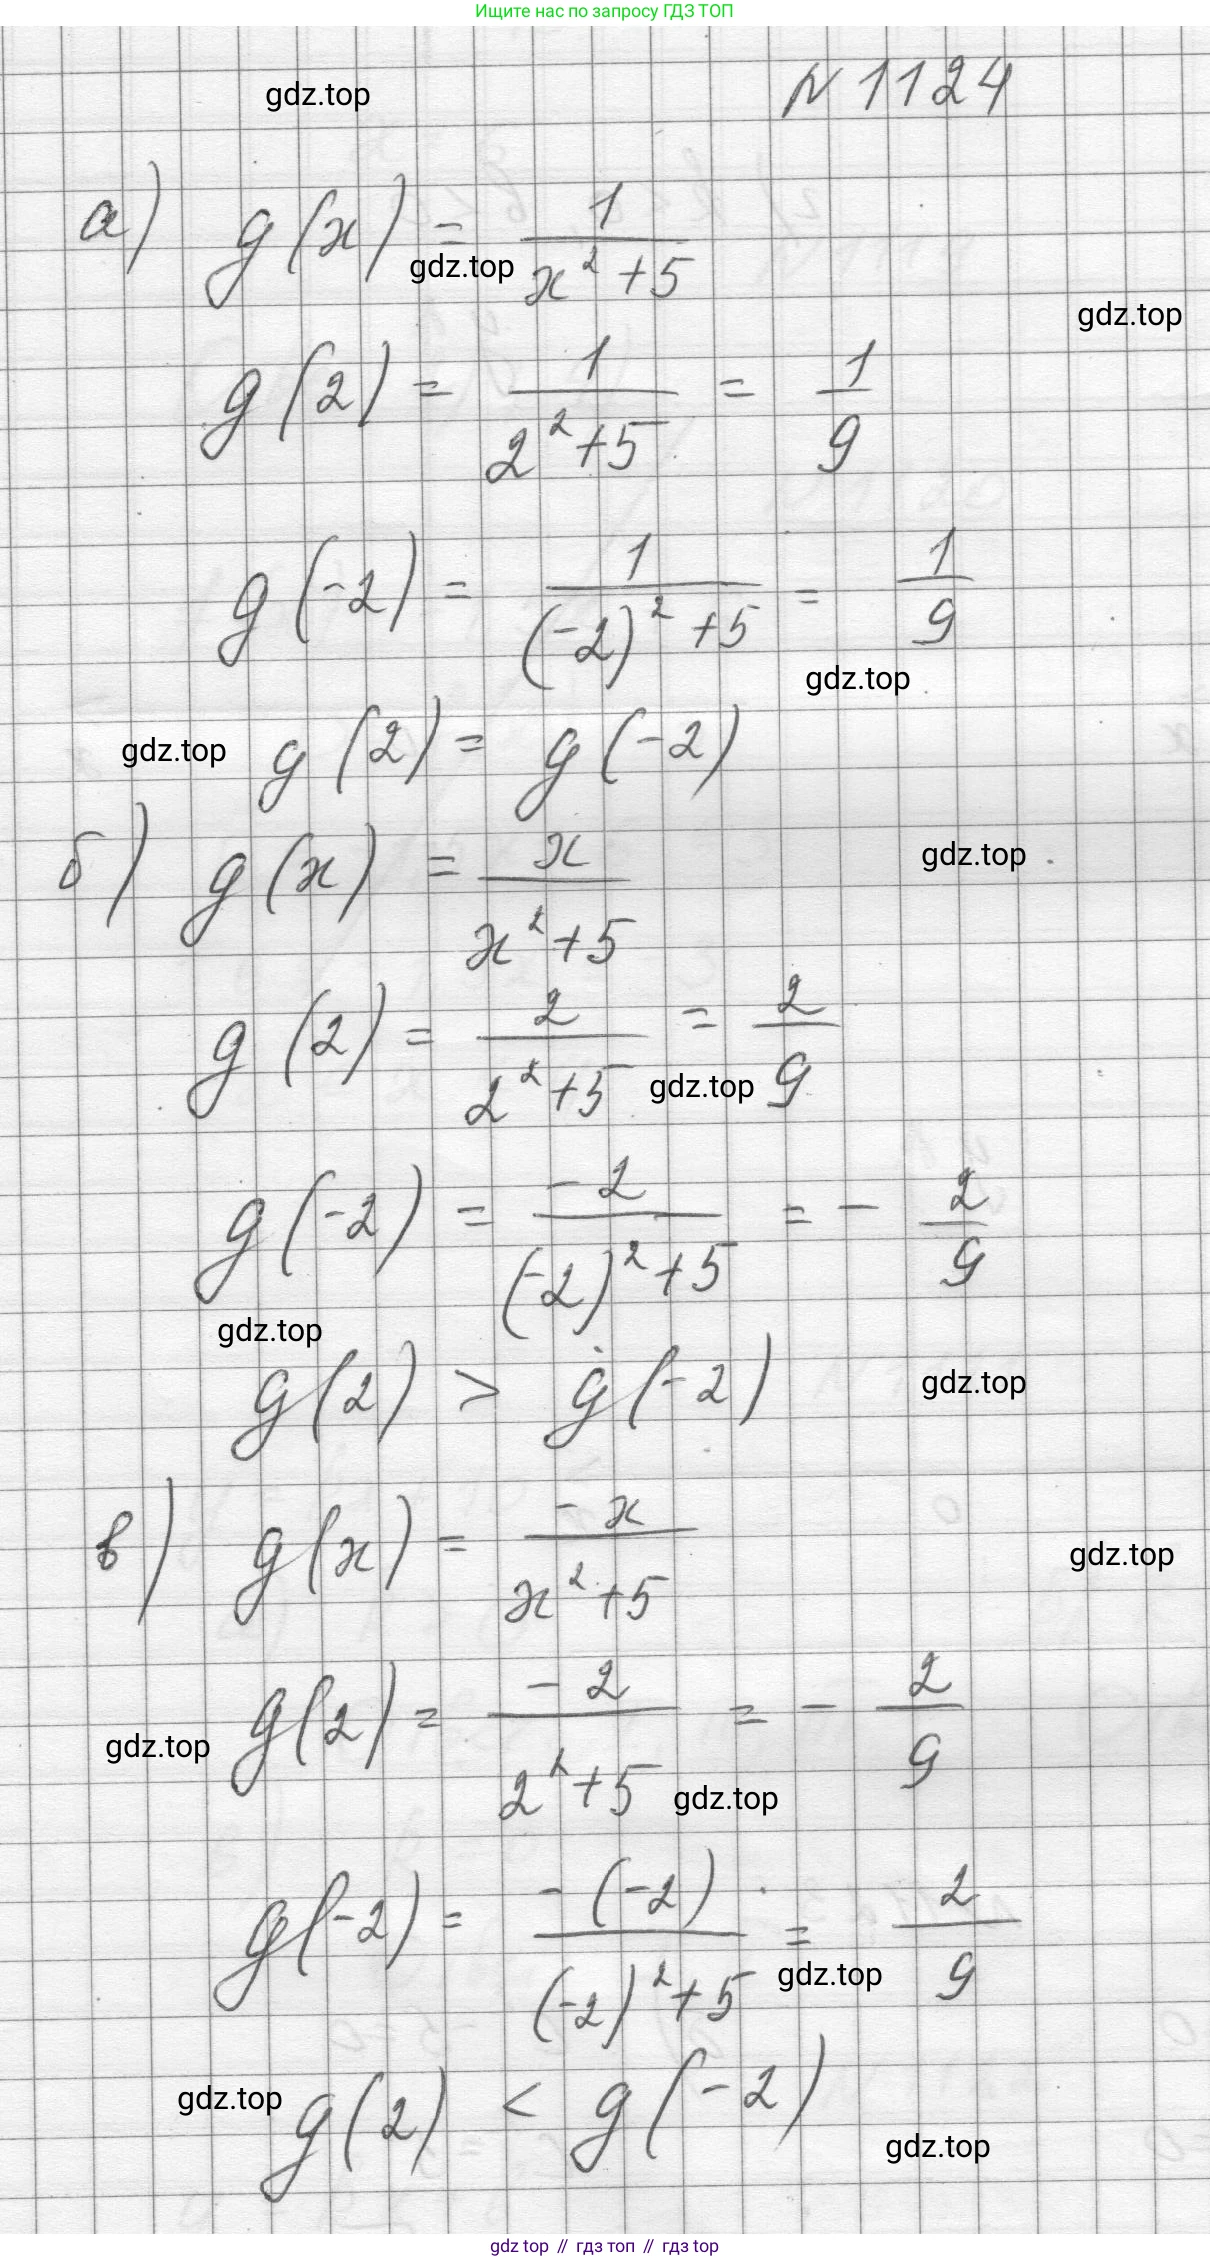 Ищите нас по запросу ГДЗ ТОП
gdz.top
N 1124
а) g(x) = 1/(x² + 5)
gdz.top
gdz.top
g(2) = 1/(2² + 5) = 1/9
g(-2) = 1/((-2)² + 5) = 1/9
gdz.top
gdz.top
g(2) = g(-2)
б) g(x) = x/(x² + 5)
gdz.top
g(2) = 2/(2² + 5) = 2/9
gdz.top
g(-2) = -2/((-2)² + 5) = - 2/9
gdz.top
g(2) > g(-2)
gdz.top
в) g(x) = -x/(x² + 5)
gdz.top
g(2) = -2/(2² + 5) = - 2/9
gdz.top
gdz.top
g(-2) = -(-2)/((-2)² + 5) = 2/9
gdz.top
gdz.top
g(2) < g(-2)
gdz.top
gdz top // гдз топ // гдз top